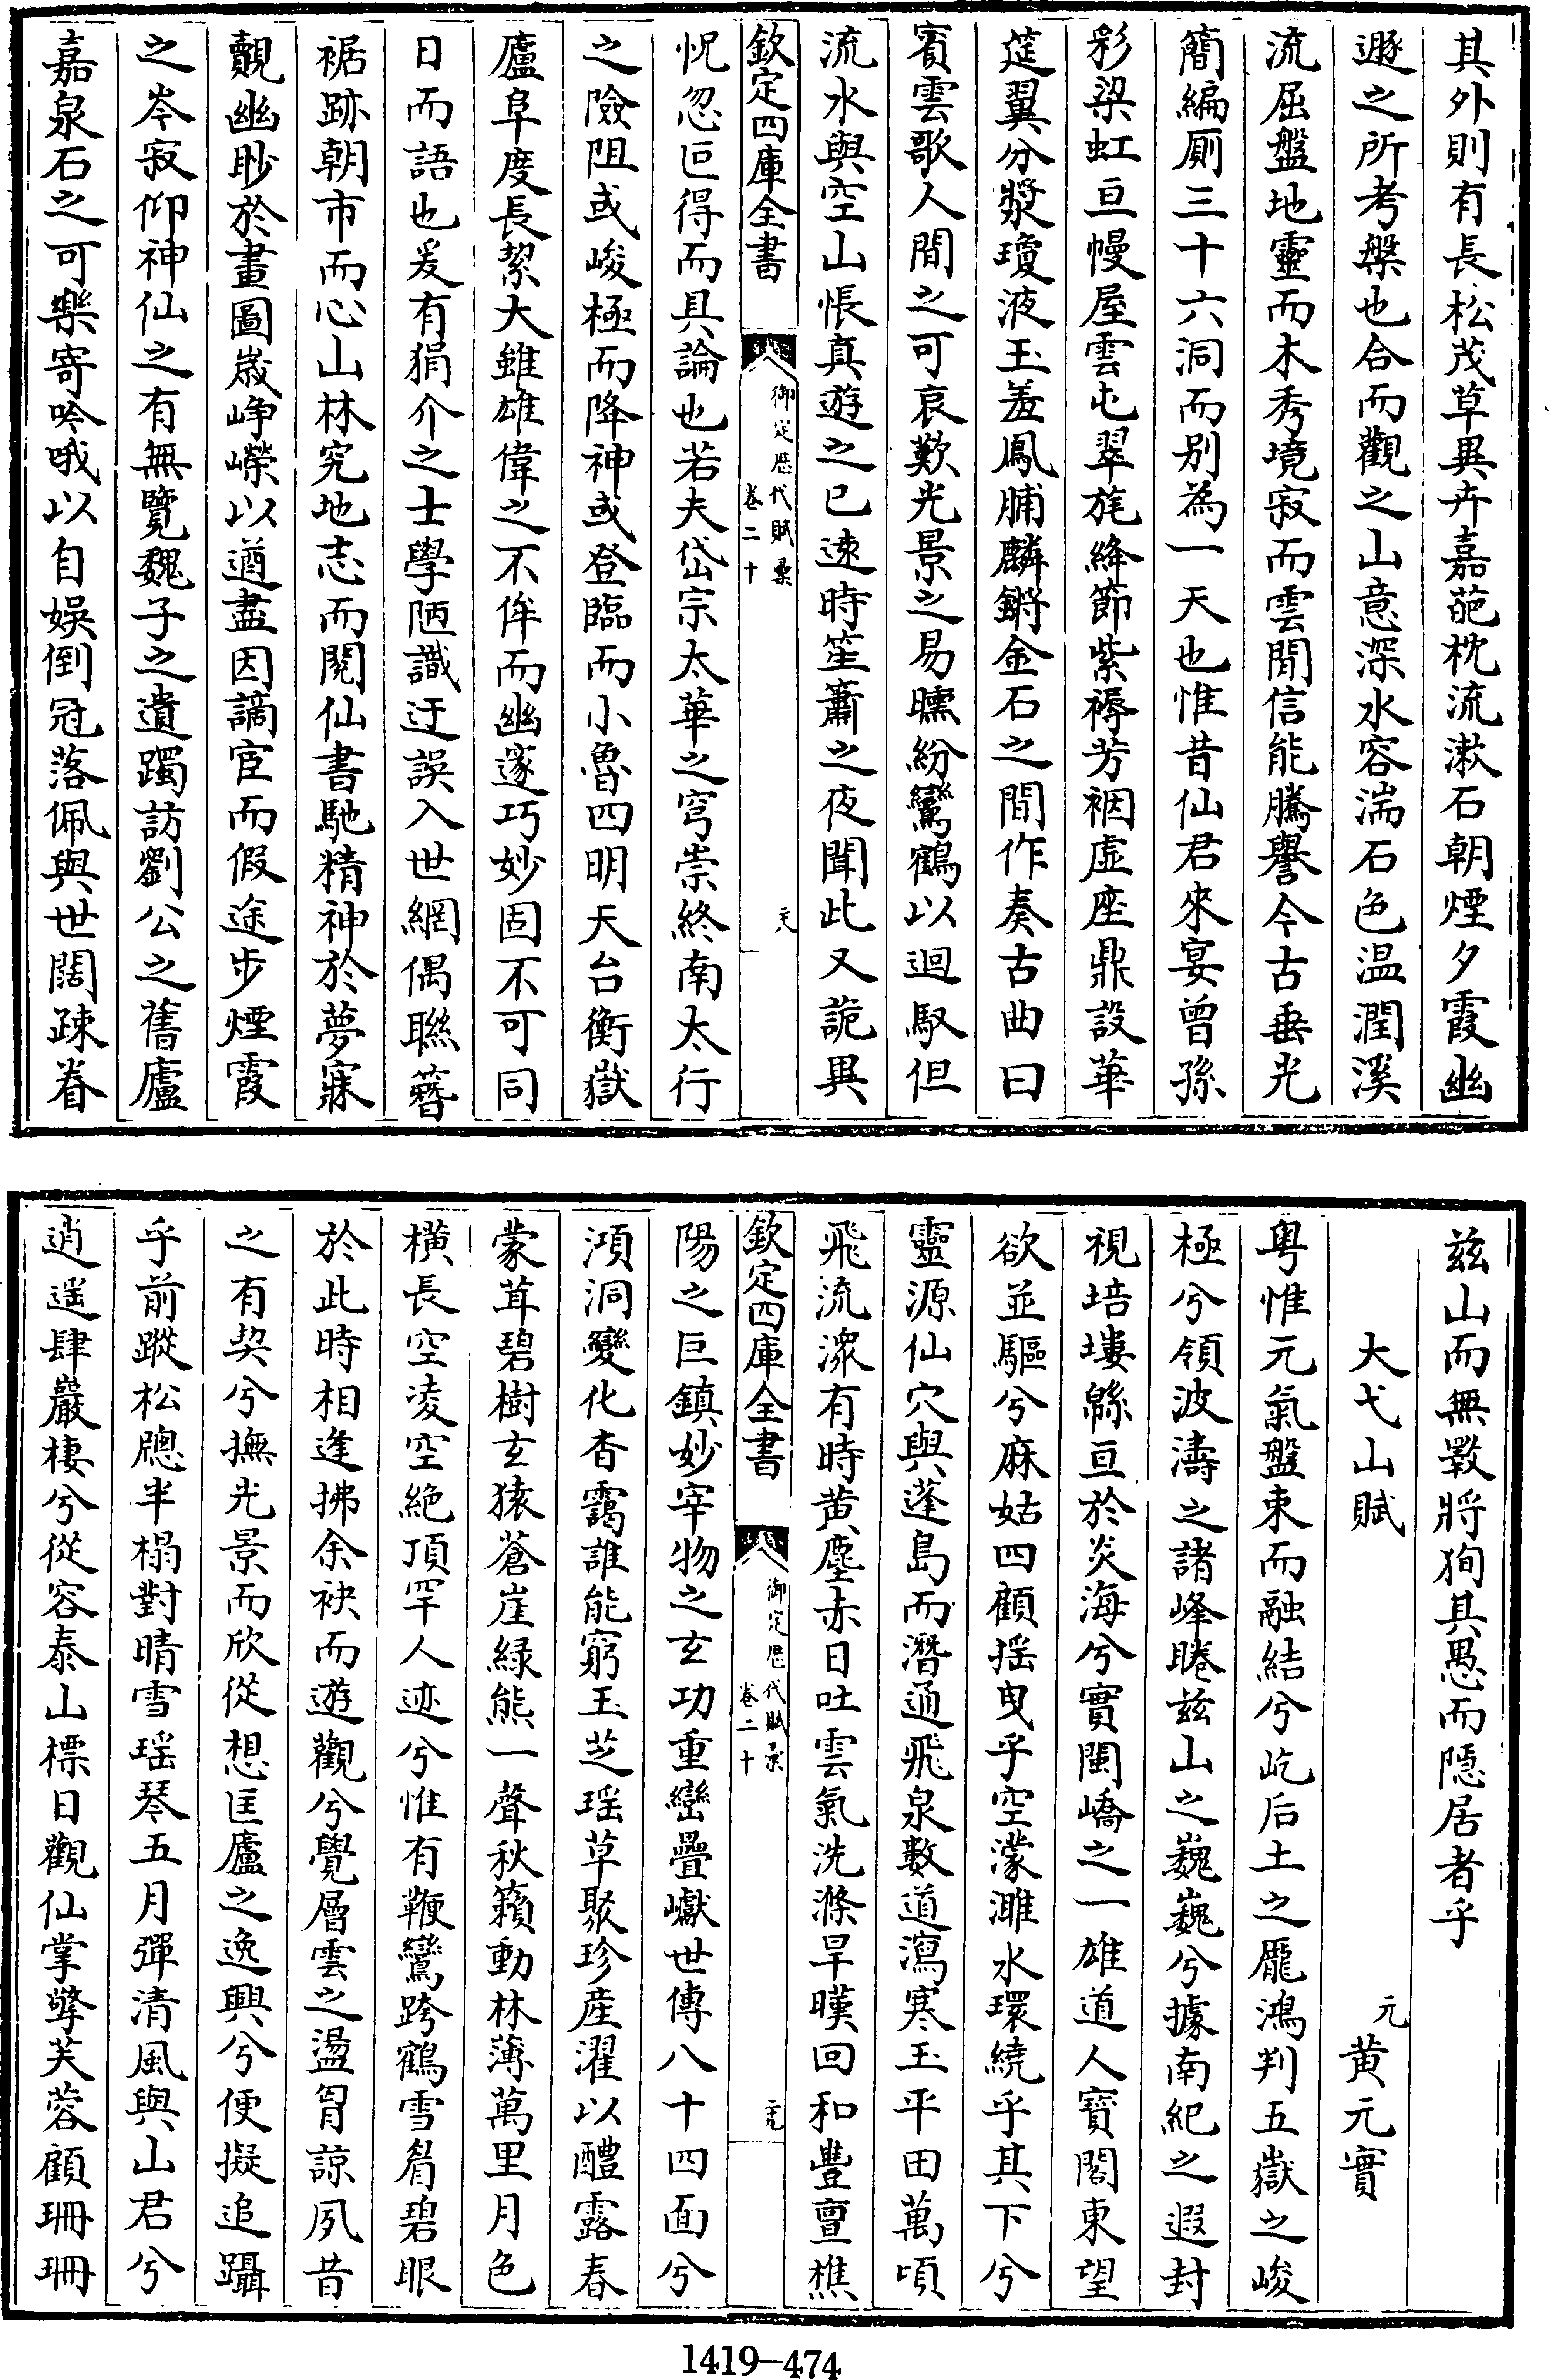 其外則有長松茂草異卉嘉葩枕流漱石朝煙夕霞幽
遯之所考槃也合而觀之山意深水容湍石色温潤溪
流屈盤地靈而木秀境寂而雲閒信能騰譽今古垂光
簡編厠三十六洞而别為一天也惟昔仙君來宴曾孫
彩梁虹亘幔屋雲屯翠旄絳節紫褥芳裀虛座鼎設華
筵翼分漿瓊液玉羞鳳脯麟鏘金石之間作奏古曲曰
賓雲歌人間之可哀歎光景之易曛紛鸞鶴以迴馭但
流水與空山悵真遊之已遠時笙簫之夜聞此又詭異
欽定四庫全書
御定歷代賦彙
卷二十
二十八
怳忽叵得而具論也若夫岱宗太華之穹崇終南太行
之險阻或峻極而降神或登臨而小魯四明天台衡嶽
廬阜度長絜大雖雄偉之不侔而幽邃巧妙固不可同
日而語也爰有狷介之士學陋識迂誤入世網偶聯簪
裾跡朝市而心山林究地志而閱仙書馳精神於夢寐
覿幽眇於畫圖嵗崢嶸以遒盡因謫宦而假途步煙霞
之岑寂仰神仙之有無覽魏子之遺躅訪劉公之舊廬
嘉泉石之可樂寄吟哦以自娛倒冠落佩與世闊疎眷
兹山而無斁將狥其愚而隱居者乎
大弋山賦
元黄元實
粤惟元氣盤束而融結兮屹后土之龎鴻判五嶽之峻
極兮領波濤之諸峰睠兹山之巍巍兮據南紀之遐封
視培塿緜亘於炎海兮實閩嶠之一雄道人寳閣東望
欲並驅兮麻姑四顧揺曳乎空濛濉水環繞乎其下兮
靈源仙穴與蓬島而潛通飛泉數道瀉寒玉平田萬頃
飛流潨有時黄塵赤日吐雲氣洗滌旱暵回和豐亶樵
欽定四庫全書
御定歷代賦彙
卷二十
二十九
陽之巨鎮妙宰物之玄功重巒疊巘世傳八十四面兮
澒洞變化杳靄誰能窮玉芝瑶草聚珍産濯以醴露春
蒙茸碧樹玄猿蒼崖緑熊一聲秋籟動林薄萬里月色
橫長空凌空絶頂罕人迹兮惟有鞭鸞跨鶴雪眉碧眼
於此時相逢拂余袂而遊觀兮覺層雲之盪胷諒夙昔
之有契兮撫光景而欣從想匡廬之逸興兮便擬追躡
乎前蹤松牕半榻對晴雪瑶琴五月彈清風與山君兮
逍遥肆巖棲兮從容泰山標日觀仙掌擎芙蓉顧珊珊
1419-474